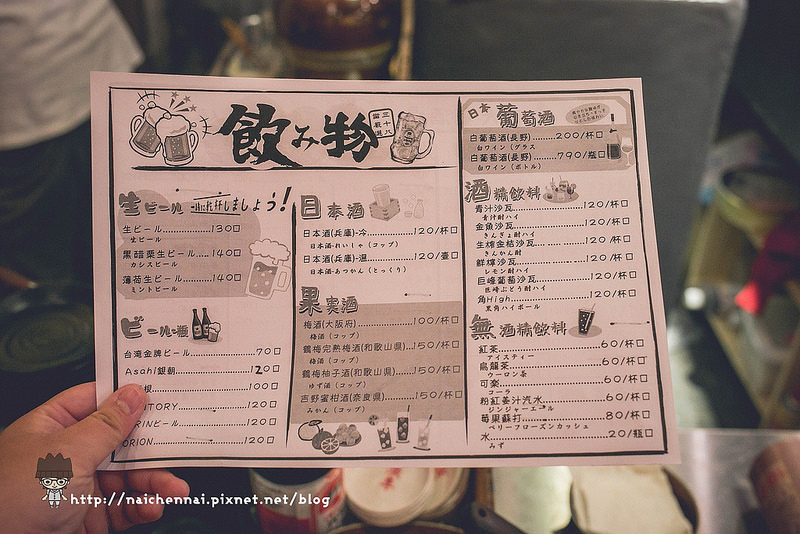 飲み物
生ビール
しましょう!
生ビール 130
生ビール
黑醋栗生ビール 140
カシスビール
薄荷生ビール 140
ミントビール
ビール-瓶
台湾金牌ビール 70
Asahi 120
根 100
NTORY 120
RINビール 120
ORION 120
日本酒
日本酒(兵庫)-冷 120/杯
日本酒-れいしゃ(コップ)
日本酒(兵庫)-溫 120/壺
日本酒-あつかん(とっくり)
果実酒
梅酒(大阪府) 100/杯
梅酒(コップ)
鶴梅完熟梅酒(和歌山県) 150/杯
梅酒(コップ)
鶴梅柚子酒(和歌山県) 150/杯
ゆず酒(コップ)
吉野蜜柑酒(奈良県) 150/杯
みかん(コップ)
日本葡萄酒
白葡萄酒(長野) 200/杯
白ワイン(グラス
白葡萄酒(長野) 790/瓶
白ワイン(ボトル)
酒精飲料
青汁沙瓦 120/杯
青汁酎ハイ
金魚沙瓦 120/杯
きんぎょ酎ハイ
生搾金桔沙瓦 120/杯
きんかん酎
鮮檸沙瓦 120/杯
レモン酎ハイ
巨峰葡萄沙瓦 120/杯
巨峰ぶどう酎ハイ
角High 120/杯
黑角ハイボール
無酒精飲料
紅茶 60/杯
アイスティー
烏龍茶 60/杯
ウーロン茶
可楽 60/杯
コーラ
粉紅姜汁汽水 60/杯
ジンジャーエール
莓果蘇打 80/杯
ベリーフローズンカッシュ
水 20/瓶
みず
http://naichennai.pixnet.net/blog